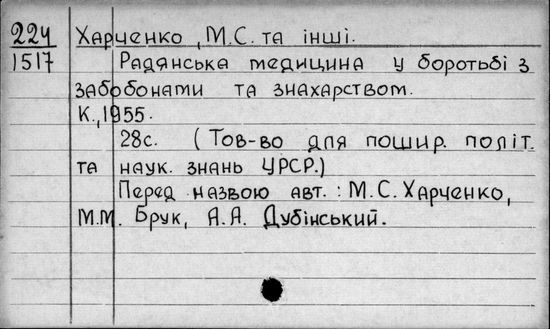 224 Харченко, М.С. та інші.
1517 Радянська медицина у боротьбі з
забобонами та знахарством.
К., 1955.
28с. (Тов-во для пошир. політ.
та наук. знань УРСР.)
Перед назвою авт.: М.С. Харченко,
М.М. Брук, А.А. Дубінський.